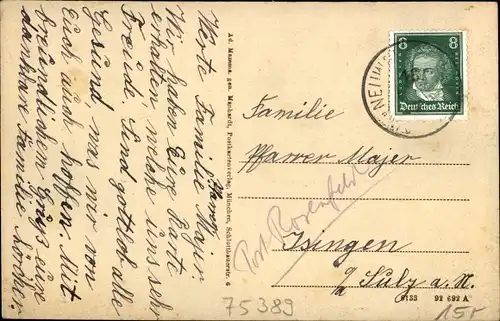 Werte Familie Pfarr. Majer.
Wir haben Eure Karte
erhalten, welche uns sehr
Freude. Sind gottlob alle
Gesund was wir von
Euch auch hoffen. Mit
freundlichem Gruß Eure
dankbare Familie
Ad. Mamma, gen. Menhardt, Postkartenverlag, München, Schleißheimerstr. 6
8 8
Deutsches Reich
Familie
Pfarrer Majer
Post Rosenfeld
Isingen
Sulz a. N.
6133 92 692 A
75389
15.-